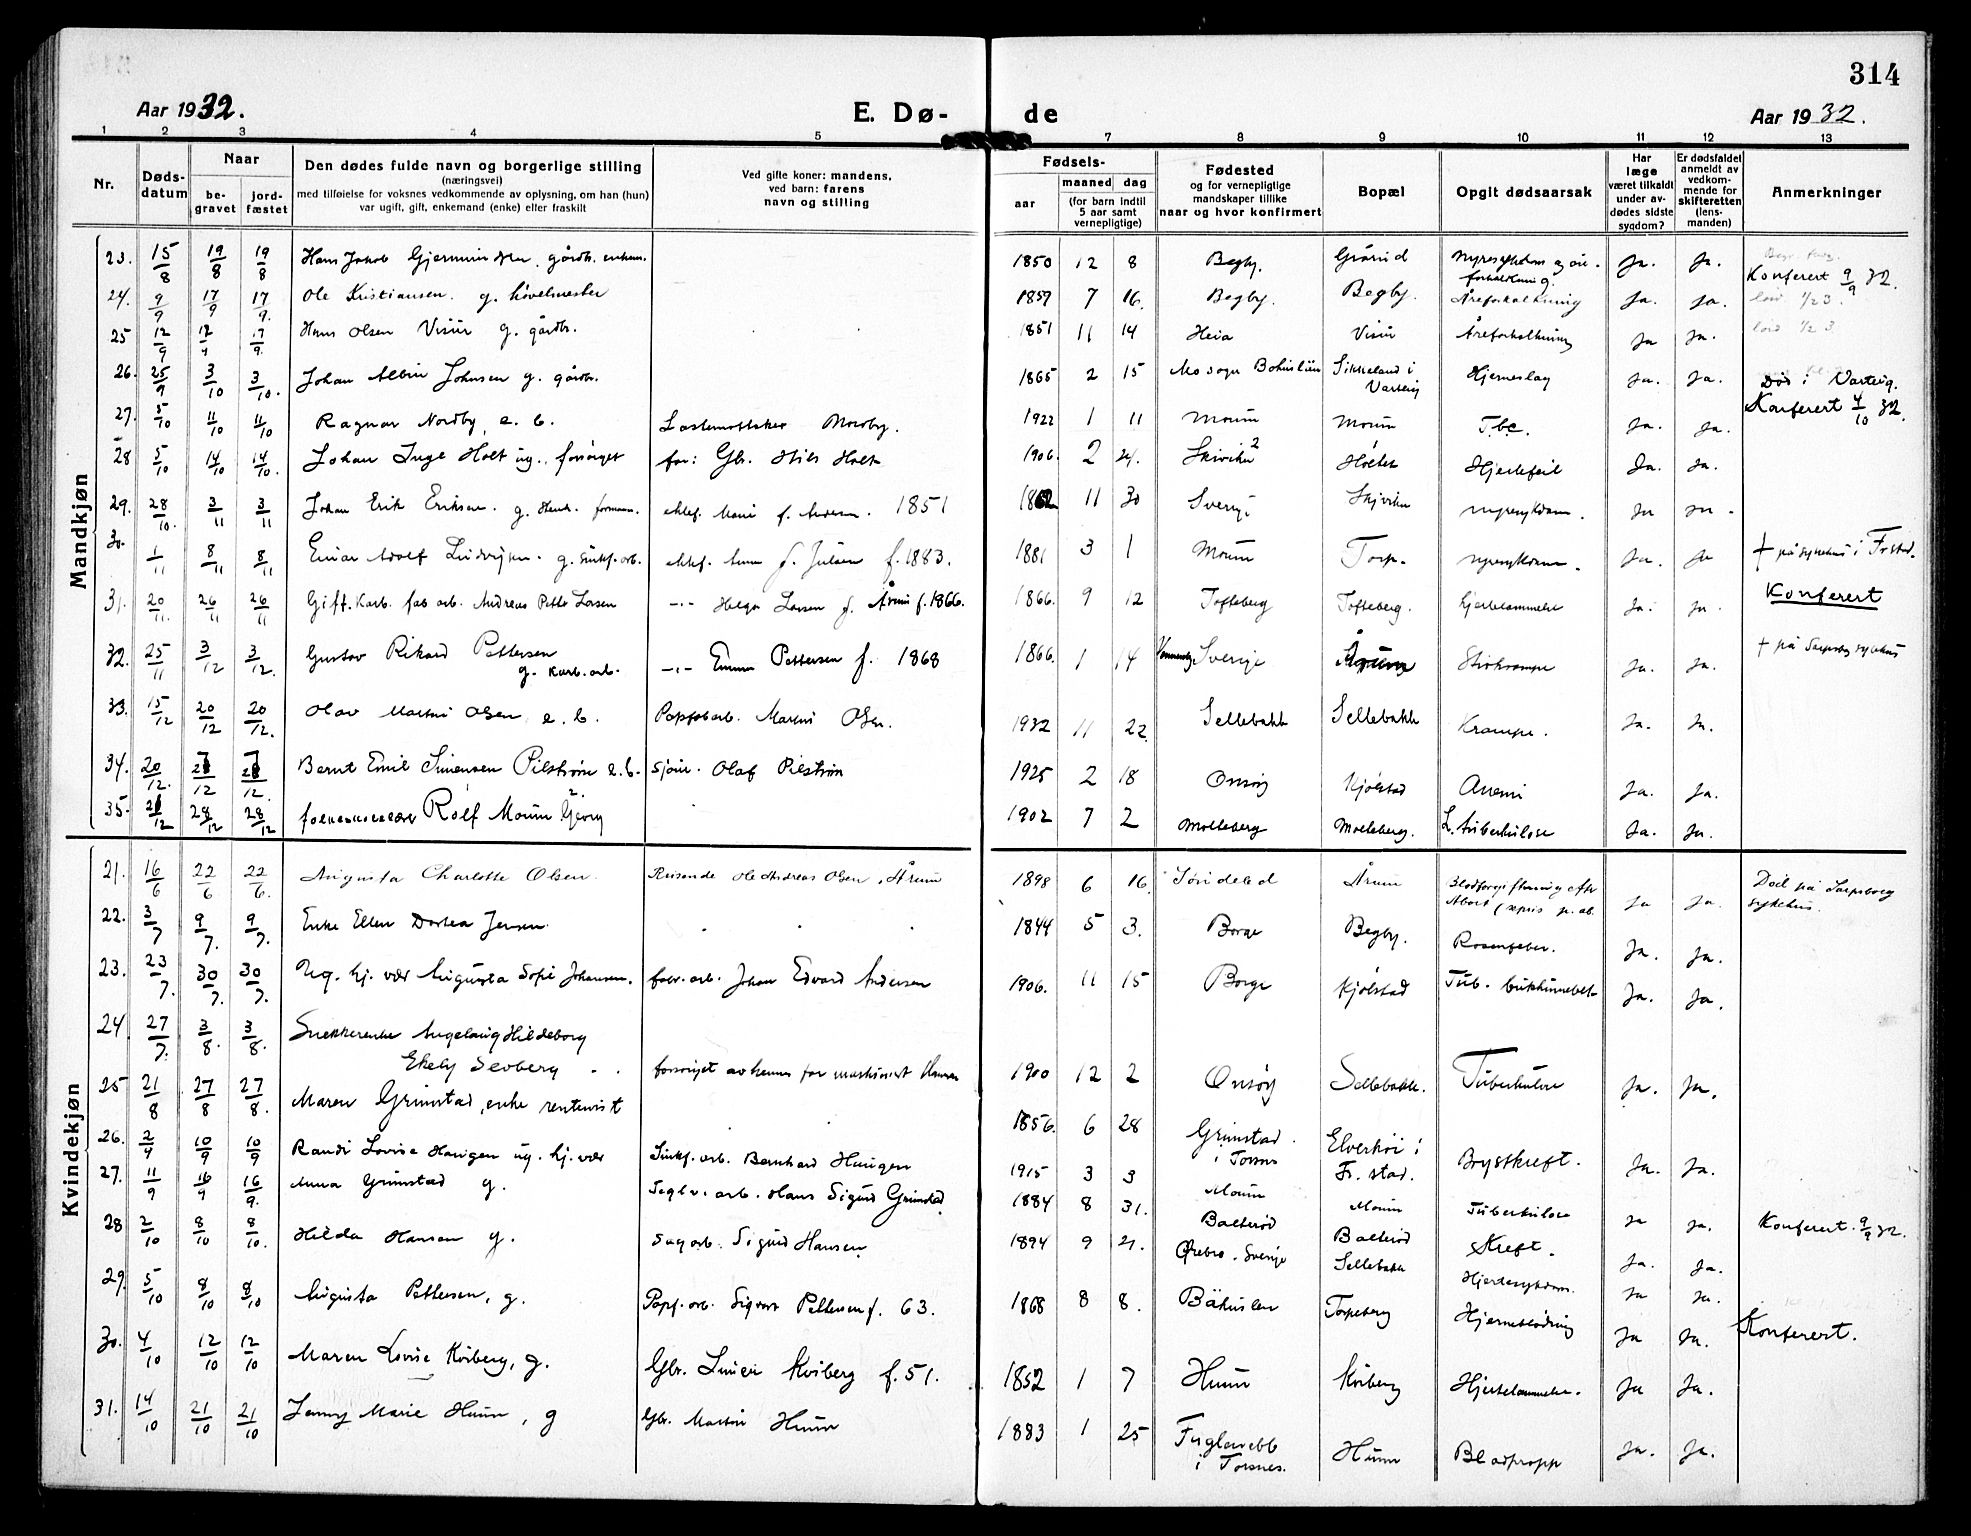 314
Aar 1932.
E. Dø-
de
Aar 1932.
1 2 3 4 5 7 8 9 10 11 12 13
Nr.
Døds-
datum
Naar
be-
gravet
jord-
fæstet
Den dødes fulde navn og borgerlige stilling
(næringsvei)
med tilføielse for voksnes vedkommende av oplysning, om han (hun)
var ugift, gift, enkemand (enke) eller fraskilt
Ved gifte koner: mandens,
ved barn: farens
navn og stilling
Fødsels-
aar
maaned dag
(for barn indtil
5 aar samt
vernepligtige)
Fødested
og for vernepligtige
mandskaper tillike
naar og hvor konfirmert
Bopæl
Opgit dødsaarsak
Har
læge
været tilkaldt
under av-
dødes sidste
sygdom?
Er dødsfaldet
anmeldt av
vedkom-
mende for
skifteretten
(lens-
manden)
Anmerkninger
Mandkjøn
23. 15/8 19/8 19/8 Hans Jakob gårdbr. enkem. 1850 12 8 Begby. Ja. Ja. Konferert 9/9 32.
24. 9/9 17/9 17/9. Ole Kristiansen. g. høvelmester 1857 7 16. Begby. Begby. Åreforkalkning Ja. Ja.
25 12/9 17/9. Hans Olsen Visür g. gårdbr. 1851 11 14 Heia Visür Åreforkalkning Ja Ja.
26. 25/9 3/10 3/10. Johan Albin Johnsen g. gårdbr. 1865 2 15 Mo sogn Bohuslän Sikkeland i Varteig Hjerneslag Ja. Ja. Død i Varteig.
27. 5/10 11/10 11/10 Ragnar Nordby, e. b. Nordby. 1922 1 11 Moum Moum Tbc. Ja. Ja. Konferert 4/10 32.
28 5/10 14/10 14/10. Johan Inge Holt ug., forsørget far: Gbr. Nils Holt 1906. 2 24. Holtet Hjertefeil Ja. Ja.
29. 28/10. 3/11 3/11 Johan Erik Eriksen. g. formann. ektef. Marie f. Andersen. 1851 11 30 Sverige Skjviken nyresykdom. Ja Ja.
30. 1/11 8/11 8/11 Einar Adolf g. sulf. arb. ektef. Anna f. Julsen f. 1883. 1881 3 1 Moum Torp. nyresykdom. Ja. Ja † på sykehus i Frstad.
31. 20/11. 26/11 26/11 Gift. Karb. fab arb. Andreas Petter Larsen -"- Helga Larsen f. Årum f. 1866. 1866. 9 12 Tofteberg Tofteberg. hjertelammelse Ja. Ja. Konferert
32. 25/11 3/12 3/12. Gustav Rikard Pettersen g. Karb. arb. -"- Emma Pettersen f. 1868 1866. 1 14 Sverige Årum Ja. Ja. † på Sarpsborg sykehus
33. 15/12 20/12 20/12. Olav Martin Olsen e. b. Papfabarb. Martin Olsen. 1932 11 22. Sellebakk Sellebakk Krampe. Ja. Ja.
34. 20/12. Bernt Emil Simensen Pilstrøm e. b. Sjøm. Olaf Pilstrøm 1925 2 18 Onsøy Kjølstad Anemi Ja. Ja.
35. 28/12 28/12 Rolf Moum Georg 1902 7 2 Molleberg Molleberg. L. tuberkulose Ja. Ja.
Kvindekjøn
21. 16/6 22/6 22/6. Augusta Charlotte Olsen. Reisende Ole Andreas Olsen, Årum 1898 6 16. Søndeled Årum Blodforgiftning efter Abort (sepsis p. ab. Ja Ja. Død på Sarpsborg sykehus.
22. 3/7 9/7. 9/7. Enke Ellen Dortea Jensen. 1844 5 3. Borge Begby. Rosenfeber. Ja. Ja.
23. 23/7. 30/7. 30/7. Ug. hj. vær Augusta Sofie Johansen. fabr. arb. Johan Edvard Andersen 1906. 11 15 Borge Kjølstad Tub. bukhinnebet. Ja. Ja.
24. 27/7. 3/8. 3/8. Snekkerenke Angelaug Hildeborg Ekely Sevberg forsørget av hennes far maskinist Hansen 1900 12 2 Onsøy Sellebakk. Tuberkulose Ja. Ja.
25 21/8 27/8 27/8. Maren Grimstad, enke rentenist 1856. 6 28 Grimstad i Torsnes Elverhøi i Fr. stad. Brystkreft. Ja. Ja.
26. 2/9 10/9 10/9 Randi Lovise Haugen ug. hj. vær Sulf. arb. Bernhard Haugen 1915 3 3 Moum Moum Tuberkulose Ja Ja. Konferert. 9/9 32.
27. 11/9 16/9 16/9. Anna Grimstad g. Teglv. arb. Hans Sigurd Grimstad 1884 8 31. Balterød Balterød Kreft. Ja. Ja.
28 2/10 8/10 8/10. Hilda Hansen g. Sagarb. Sigurd Hansen 1894 9 21. Ørebro. Sverige Sellebakk Hjertesykdom. Ja Ja.
29. 5/10 8/10 8/10 Augusta Pettersen, g. Papf. arb. Sigvart Pettersen f. 63. 1868 8 8. Båhuslen Torpeberg Hjerneblødning Ja Ja. Konferert.
30. 4/10 12/10 12/10 Maren Lovise Kviberg, g. Gbr. Simen Kviberg f. 51. 1852 1 7 Hunn Kviberg Hjertelammelse. Ja Ja.
31. 14/10 21/10 21/10 Jenny Marie Hunn, g Gbr. Martin Hunn 1883 1 25 Fuglevebb i Torsnes. Hunn Blodpropp Ja. Ja.